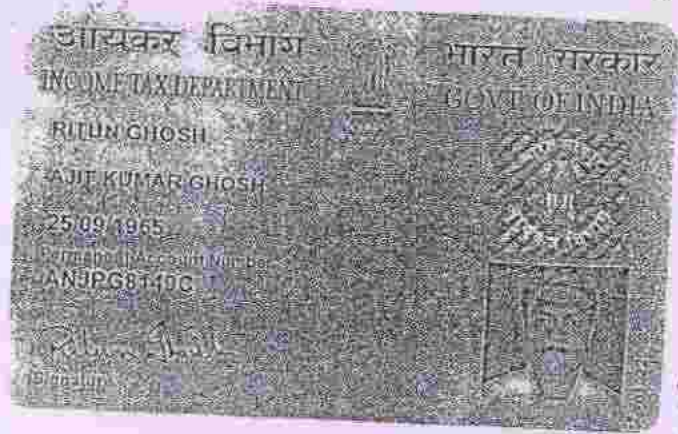 आयकर विभाग
INCOME TAX DEPARTMENT
भारत सरकार
GOVT OF INDIA
RITUN GHOSH
AJIT KUMAR GHOSH
25/09/1965
Permanent Account Number
ANJPG8140C
Signature